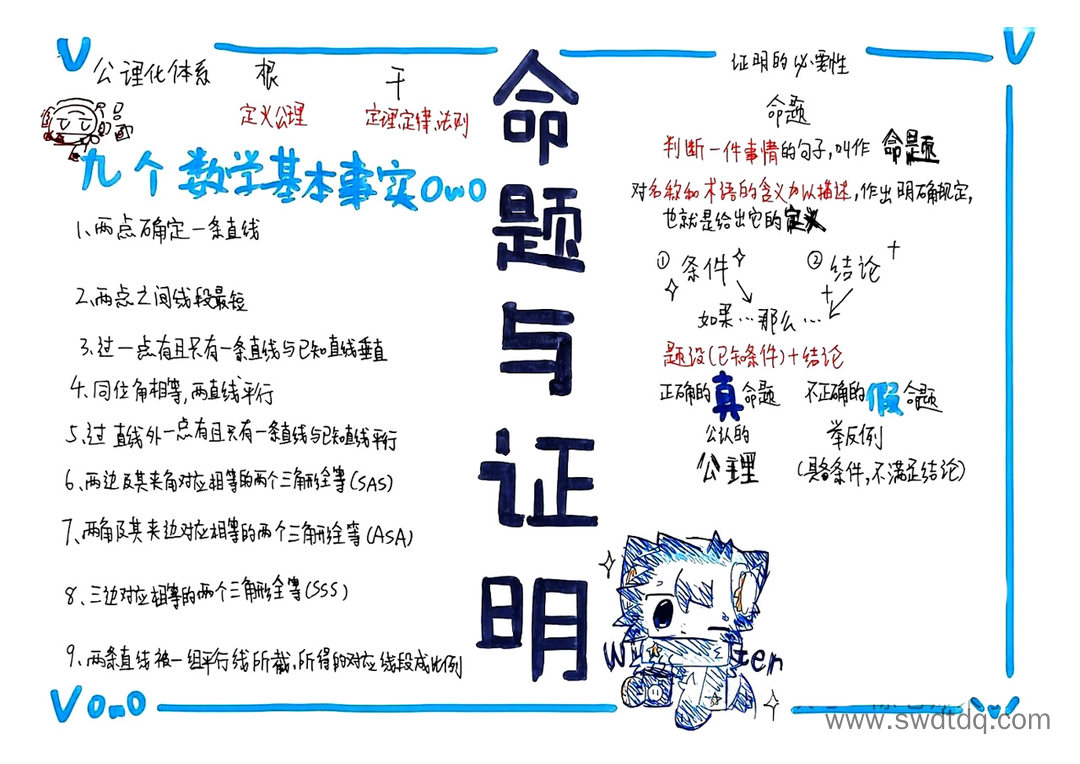 公理化体系 根 干
定义公理 定理定律、法则
九个数学基本事实OmO
1、两点确定一条直线
2、两点之间线段最短
3、过一点有且只有一条直线与已知直线垂直
4、同位角相等,两直线平行
5、过直线外一点有且只有一条直线与已知直线平行
6、两边及其夹角对应相等的两个三角形全等(SAS)
7、两角及其夹边对应相等的两个三角形全等(ASA)
8、三边对应相等的两个三角形全等(SSS)
9、两条直线被一组平行线所截,所得的对应线段成比例
OmO
命题与证明
证明的必要性
命题
判断一件事情的句子,叫作 命题
对名称和术语的含义加以描述,作出明确规定,
也就是给出它的定义
① 条件 ② 结论
如果…那么…
题设(已知条件)+结论
正确的真命题 不正确的假命题
公认的 举反例
公理 (具备条件,不满足结论)
www.swdtdq.com